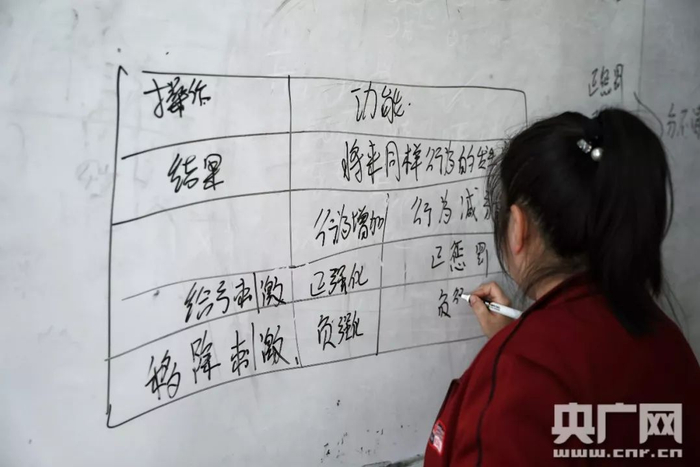 操作 功能
结果 将来同样行为的
行为增加 行为减
给予刺激 正强化 正惩罚
移除刺激 负强化 负
正惩罚
央广网
www.cnr.cn